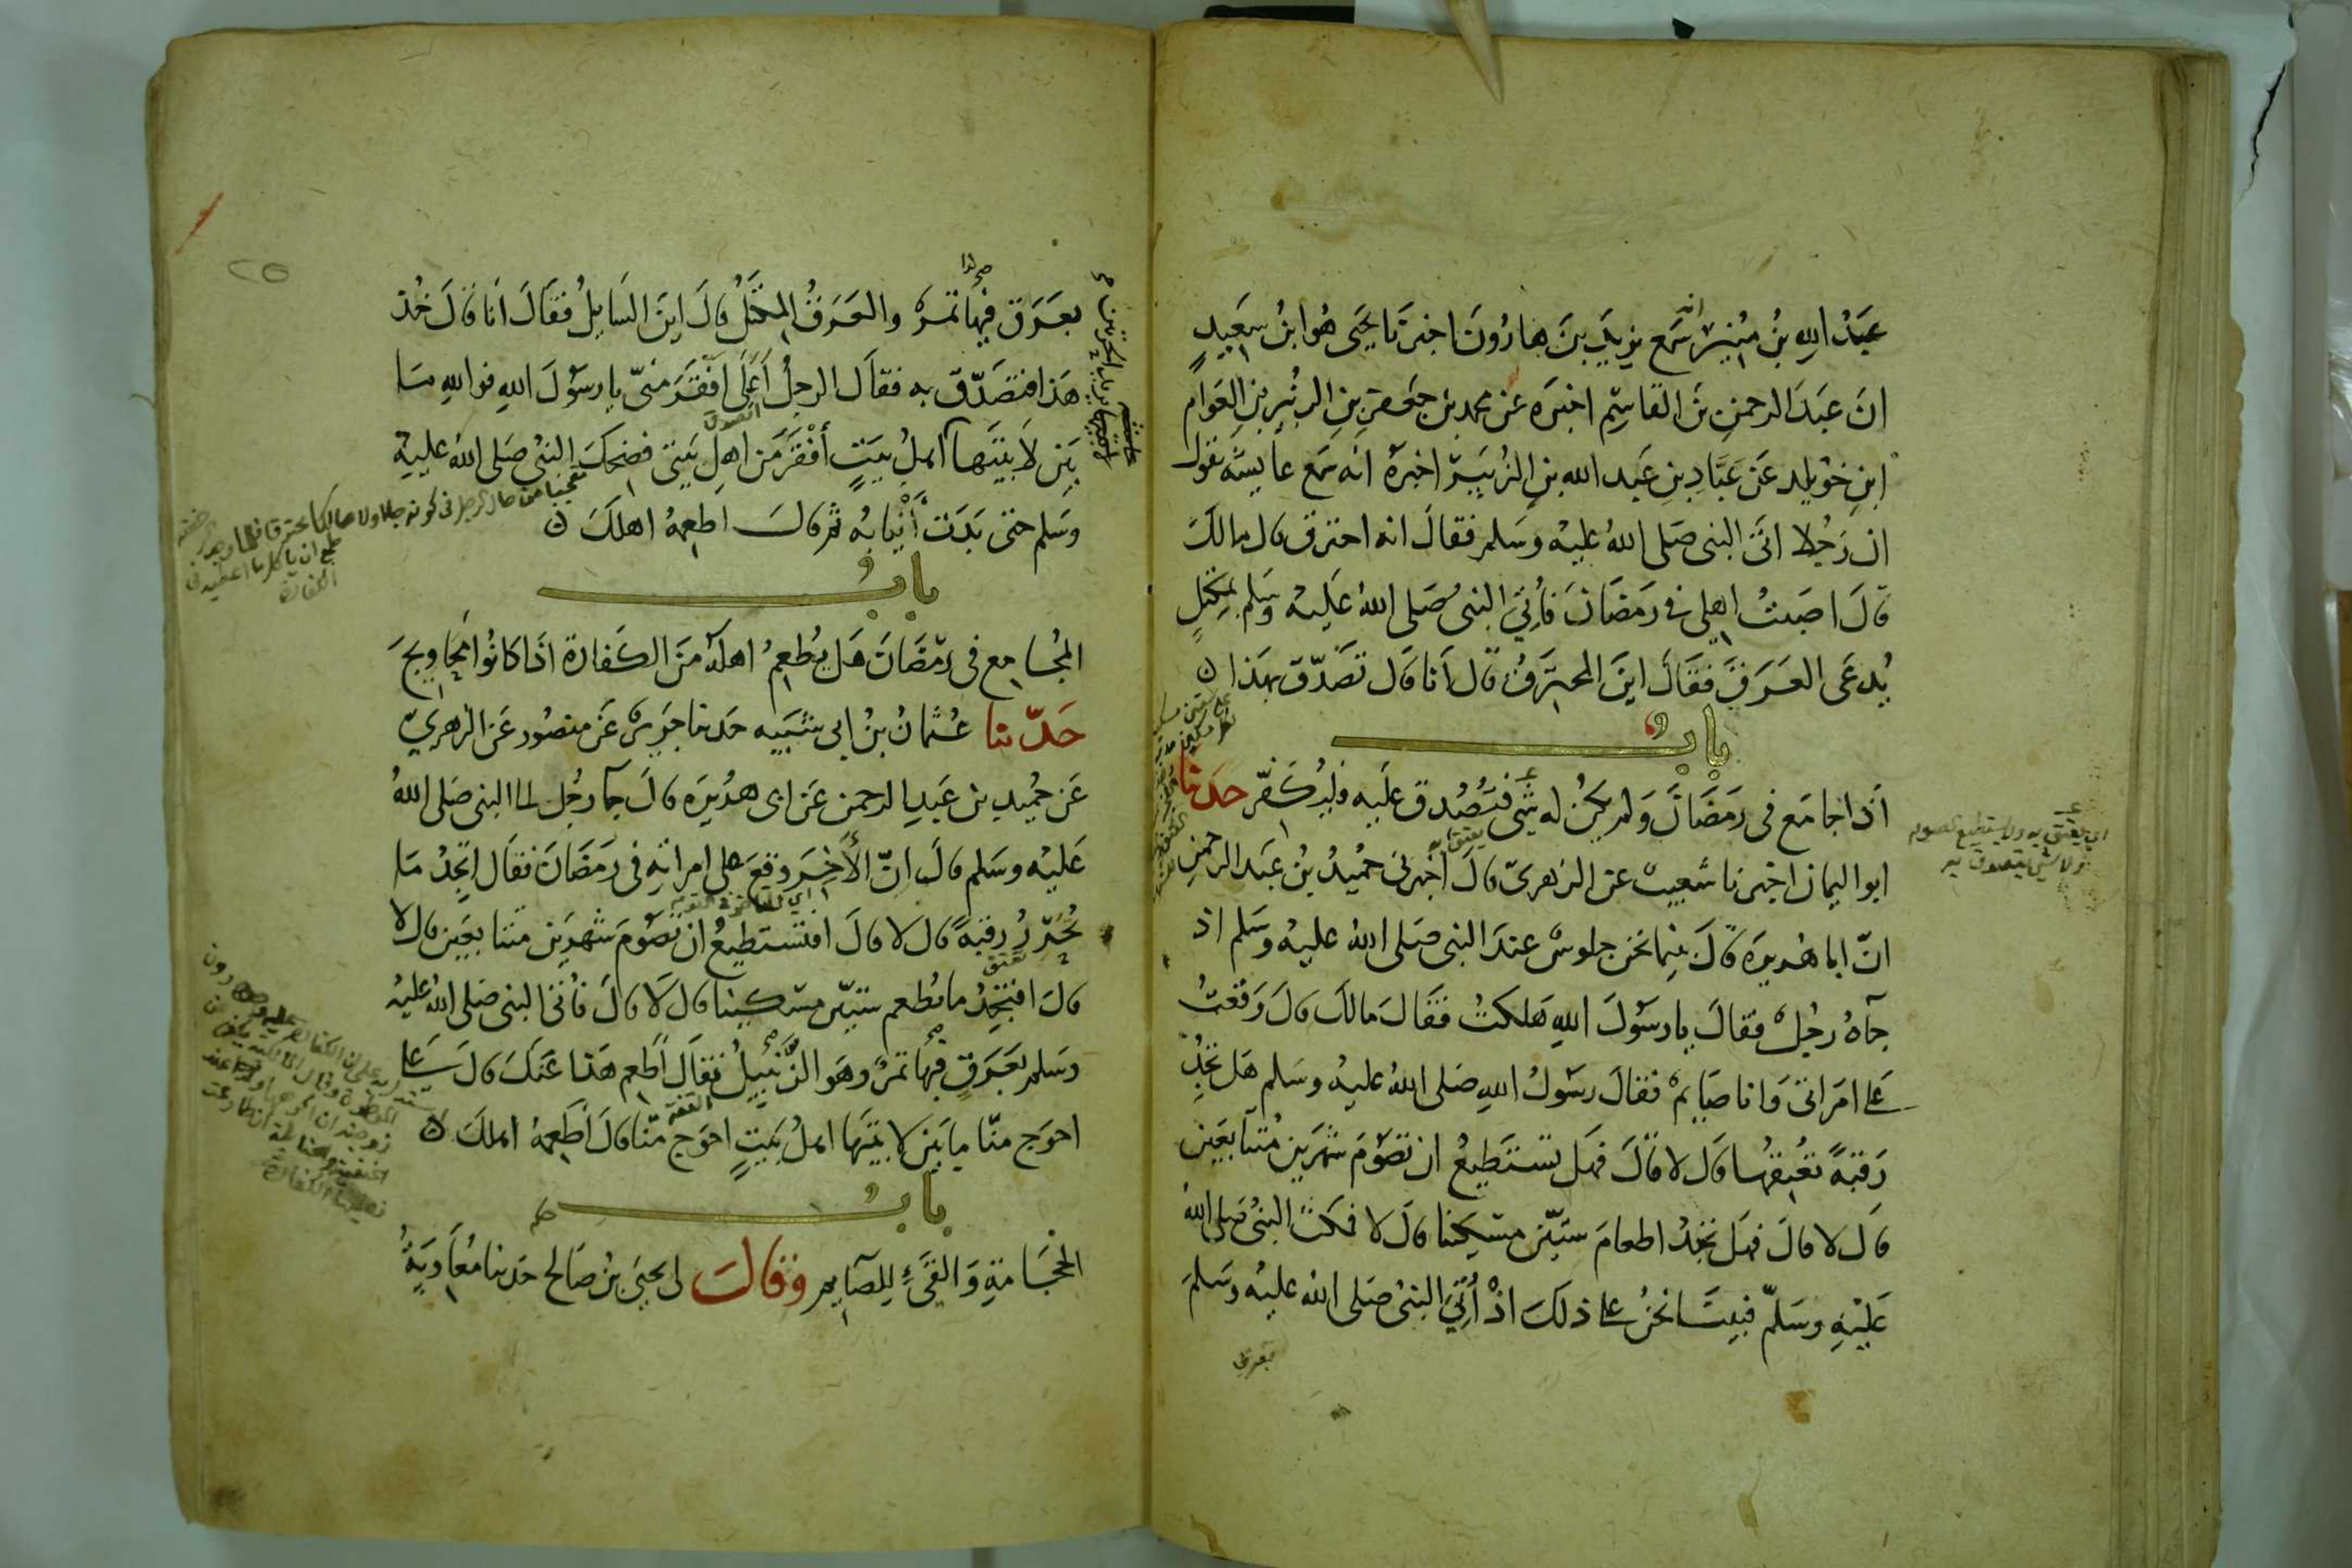 عبدُ اللهِ بنُ مُنِير انه سَمع يزيدَ بنَ هارُونَ اخبرَنا يحيَى هُوا بنُ سعَيدٍ
انَ عبَدَ الرحمنِ بنَ القاسِمِ اخبَره عَن محمد بن جَعفَر بنِ الزُبيرِ بنِ العَوامِ
ابنِ خوَيلد عَن عَبَّادِ بنِ عَبد الله بنِ الزُبَيرِ اخبرهُ انَه سَمع عايشَه تقولُ
ان رَجُلا اتىَ النبى صَلى اللهُ عليهْ وسَلم فقالَ انه احترق قال مالكَ
قَالَ اصَبتُ اهلى فى رمَضَانَ فأُتِيَ النبىُ صَلى اللهُ عَليهْ وسَلم بمِكتلٍ
يُدعَى العَرَقَ فقَالَ اينَ المحترِقُ قَالَ أنا قَال تصَدّق بهذا ن
بابُ
اذَا جامَع فى رمَضَانَ وَلم يكُن له شَئ فتُصُدق عَليه فليُكفّر حَدثنا
ابو اليمان اخبرنا شعيبٌ عن الزهرىّ قالَ اخبرنى حميُدُ بنُ عَبد الرحمنِ
انّ ابا هُريرَه قَالَ بينما نحَن جلوسٌ عندَ النبى صَلى اللهُ عليهْ وسَلم اذ
جآهُ رجُلٌ فقالَ يا رسَولَ اللهِ هَلكتُ فقَالَ مالكَ قالَ وَقعتُ
عَلى امرَاتى وَانا صَايمٌ فقالَ رسَولُ اللهِ صَلى اللهُ عليهْ وسَلم هَل تجَدُ
رَقبةً تعُتِقهُا قَالَ لا قَالَ فهَل تستَطيعُ ان تصَومَ شهرَينِ مُتتابعَينِ
قَالَ لا قالَ فهَل تجدُ اطعامَ ستيّنَ مسِكينا قالَ لا فمكثَ النبىُ صَلى اللهُ
عَليهِ وسَلّم فبينَا نحنُ على ذلكَ اذْ أُتِيَ النبىُ صَلى اللهُ عليهْ وسَلم
بعرق
اى يعتق به ولا يستطيع الصوم
ولا شئ يتصدق به
بعَرَق فيها تمرٌ والعَرَقُ المكتَلُ قالَ اينَ السَايلُ فقَالَ انَا قَالَ خُذ
هَذا فتصَدّق به فقالَ الرجلُ أعَلَى افقَرَ منىّ يا رسَولَ اللهِ فوالله مَا
بَين لَابتَيَها اهلُ بيَتٍ أفْقَرَ مَن اهلِ بَيتى فضحِكَ النبىُ صَلى اللهُ عليهْ
وسَلم حتى بَدَت أَنْيابُه ثم قالَ اطعِمهُ اهلكَ ن
بابُ
المُجامِع فى رمَضَانَ هَل يُطعِمُ اهلهُ منَ الكَفارة اذَا كانُوا مَحاويجَ
حَدّثنا عُثمانُ بنُ ابى شَيبَه حَدثنا جَريرٌ عَن منصُور عَن الزهرىّ
عَن حُميدِ بن عَبدِ الرحمن عَن ابى هرُيَره قالَ جآ رجُل الى النبى صَلى اللهُ
عَليهْ وسَلم قالَ انّ الأَخِرَ وقَعَ على امراتهِ فى رمَضَانَ فقالَ اتجِدُ مَا
تُحَرِّرُ رقَبةً قالَ لا قالَ افتستطيعُ ان تصَومَ شهرَينِ متتابعَين قالَ لا
قالَ افتجِدُ ما تُطعم ستيّنَ مسكينا قالَ لَا قالَ فأُتىَ النبى صَلى اللهُ عليهْ
وسَلم بعَرَقٍ فيها تمرٌ وهَو الزَّبيلُ فقَالَ أَطعم هَذا عَنكَ قالَ عَلى
احوَج منّا ما بَين لابتَيها اهلُ بيَتٍ احوَج منّا قالَ أَطعِمهُ اهلكَ ن
بابُ
الحجَامةِ وَالقَىءِ لِلصَايم وقالَ لى يحيىَ بنُ صَالح حَدثنا مُعَاويَةُ